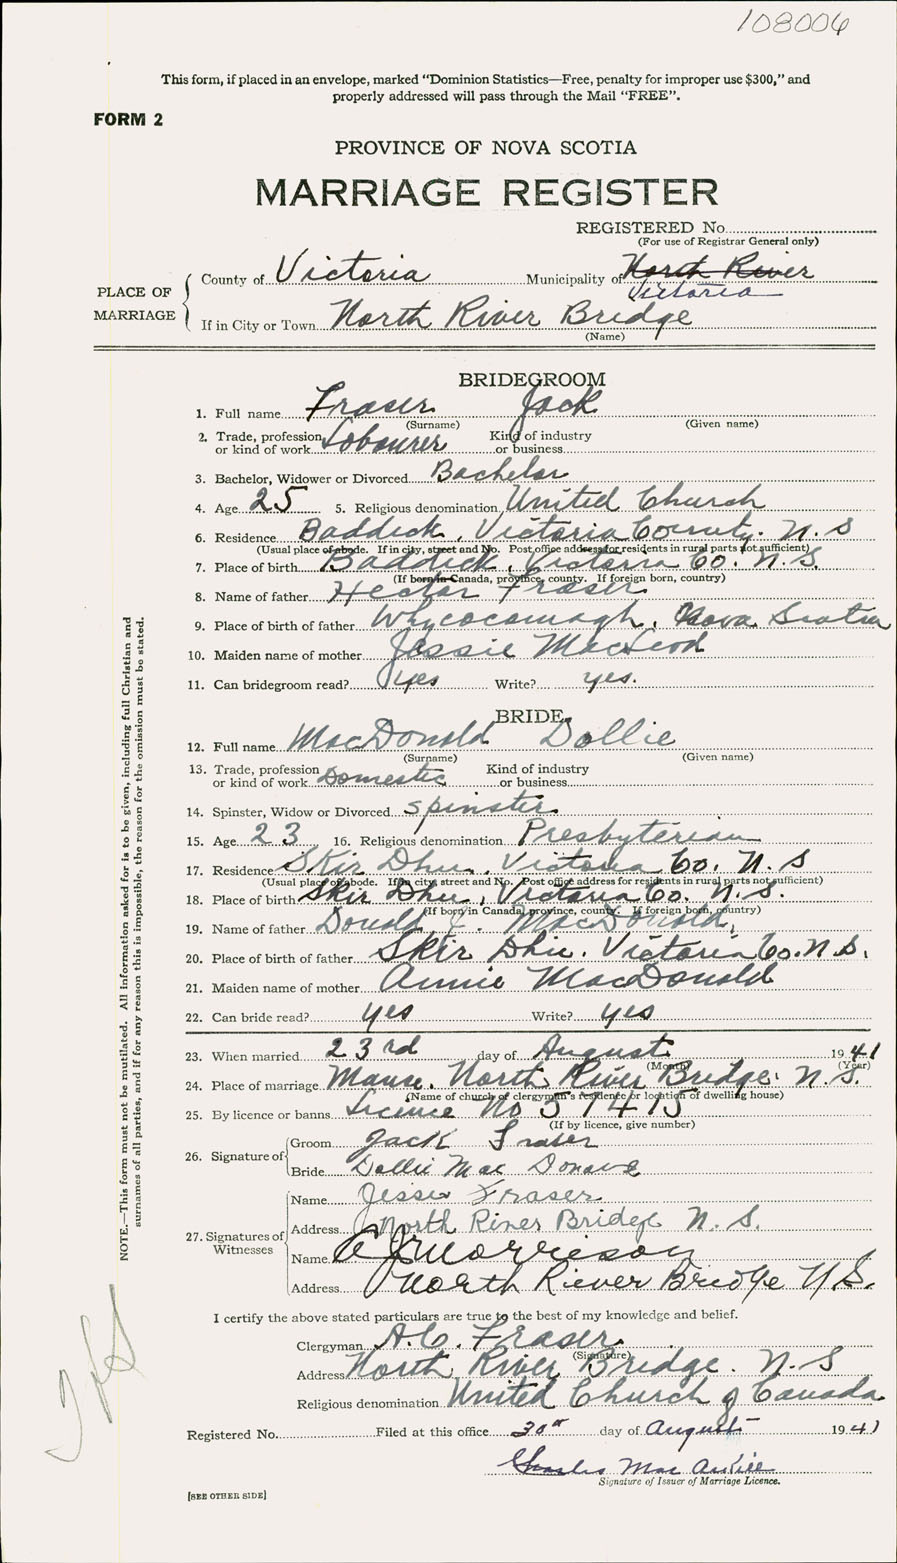 108006
This form, if placed in an envelope, marked "Dominion Statistics—Free, penalty for improper use $300," and
properly addressed will pass through the Mail "FREE".
FORM 2
PROVINCE OF NOVA SCOTIA
MARRIAGE REGISTER
REGISTERED No
(For use of Registrar General only)
PLACE OF MARRIAGE
County of Victoria Municipality of North River
Victoria
If in City or Town North River Bridge
(Name)
BRIDEGROOM
1. Full name Fraser Jack
(Surname) (Given name)
2. Trade, profession or kind of work Labourer Kind of industry or business
3. Bachelor, Widower or Divorced Bachelor
4. Age 25 5. Religious denomination United Church
6. Residence Baddeck, Victoria County. N. S
(Usual place of abode. If in city, street and No. Post office address for residents in rural parts not sufficient)
7. Place of birth Baddeck, Victoria Co. N. S.
(If born in Canada, province, county. If foreign born, country)
8. Name of father Hector Fraser
9. Place of birth of father Whycocomagh, Nova Scotia
10. Maiden name of mother Jessie MacLeod
11. Can bridegroom read? yes Write? yes.
BRIDE
12. Full name MacDonald Dollie
(Surname) (Given name)
13. Trade, profession or kind of work Domestic Kind of industry or business
14. Spinster, Widow or Divorced spinster
15. Age 23 16. Religious denomination Presbyterian
17. Residence Skir Dhu, Victoria Co. N. S
(Usual place of abode. If in city, street and No. Post office address for residents in rural parts not sufficient)
18. Place of birth Skir Dhu, Victoria Co. N. S.
(If born in Canada, province, county. If foreign born, country)
19. Name of father Donald MacDonald,
20. Place of birth of father Skir Dhu. Victoria Co. N. S.
21. Maiden name of mother Annie MacDonald
22. Can bride read? yes Write? yes
23. When married 23rd day of August 1941
(Month) (Year)
24. Place of marriage Manse, North River Bridge. N. S.
(Name of church of clergyman's residence or location of dwelling house)
25. By licence or banns Licence No 57415
(If by licence, give number)
26. Signature of
Groom Jack Fraser
Bride Dollie Mac Donald
27. Signatures of Witnesses
Name Jessie Fraser
Address North River Bridge N. S.
Name A J Morrison
Address North River Bridge N. S.
I certify the above stated particulars are true to the best of my knowledge and belief.
Clergyman A. C. Fraser
(Signature)
Address North River Bridge. N. S
Religious denomination United Church of Canada
Registered No. Filed at this office 30th day of August 1941
Charles Mac
Signature of Issuer of Marriage Licence.
[SEE OTHER SIDE]
NOTE.—This form must not be mutilated. All information asked for is to be given, including full Christian and
surnames of all parties, and if for any reason this is impossible, the reason for the omission must be stated.